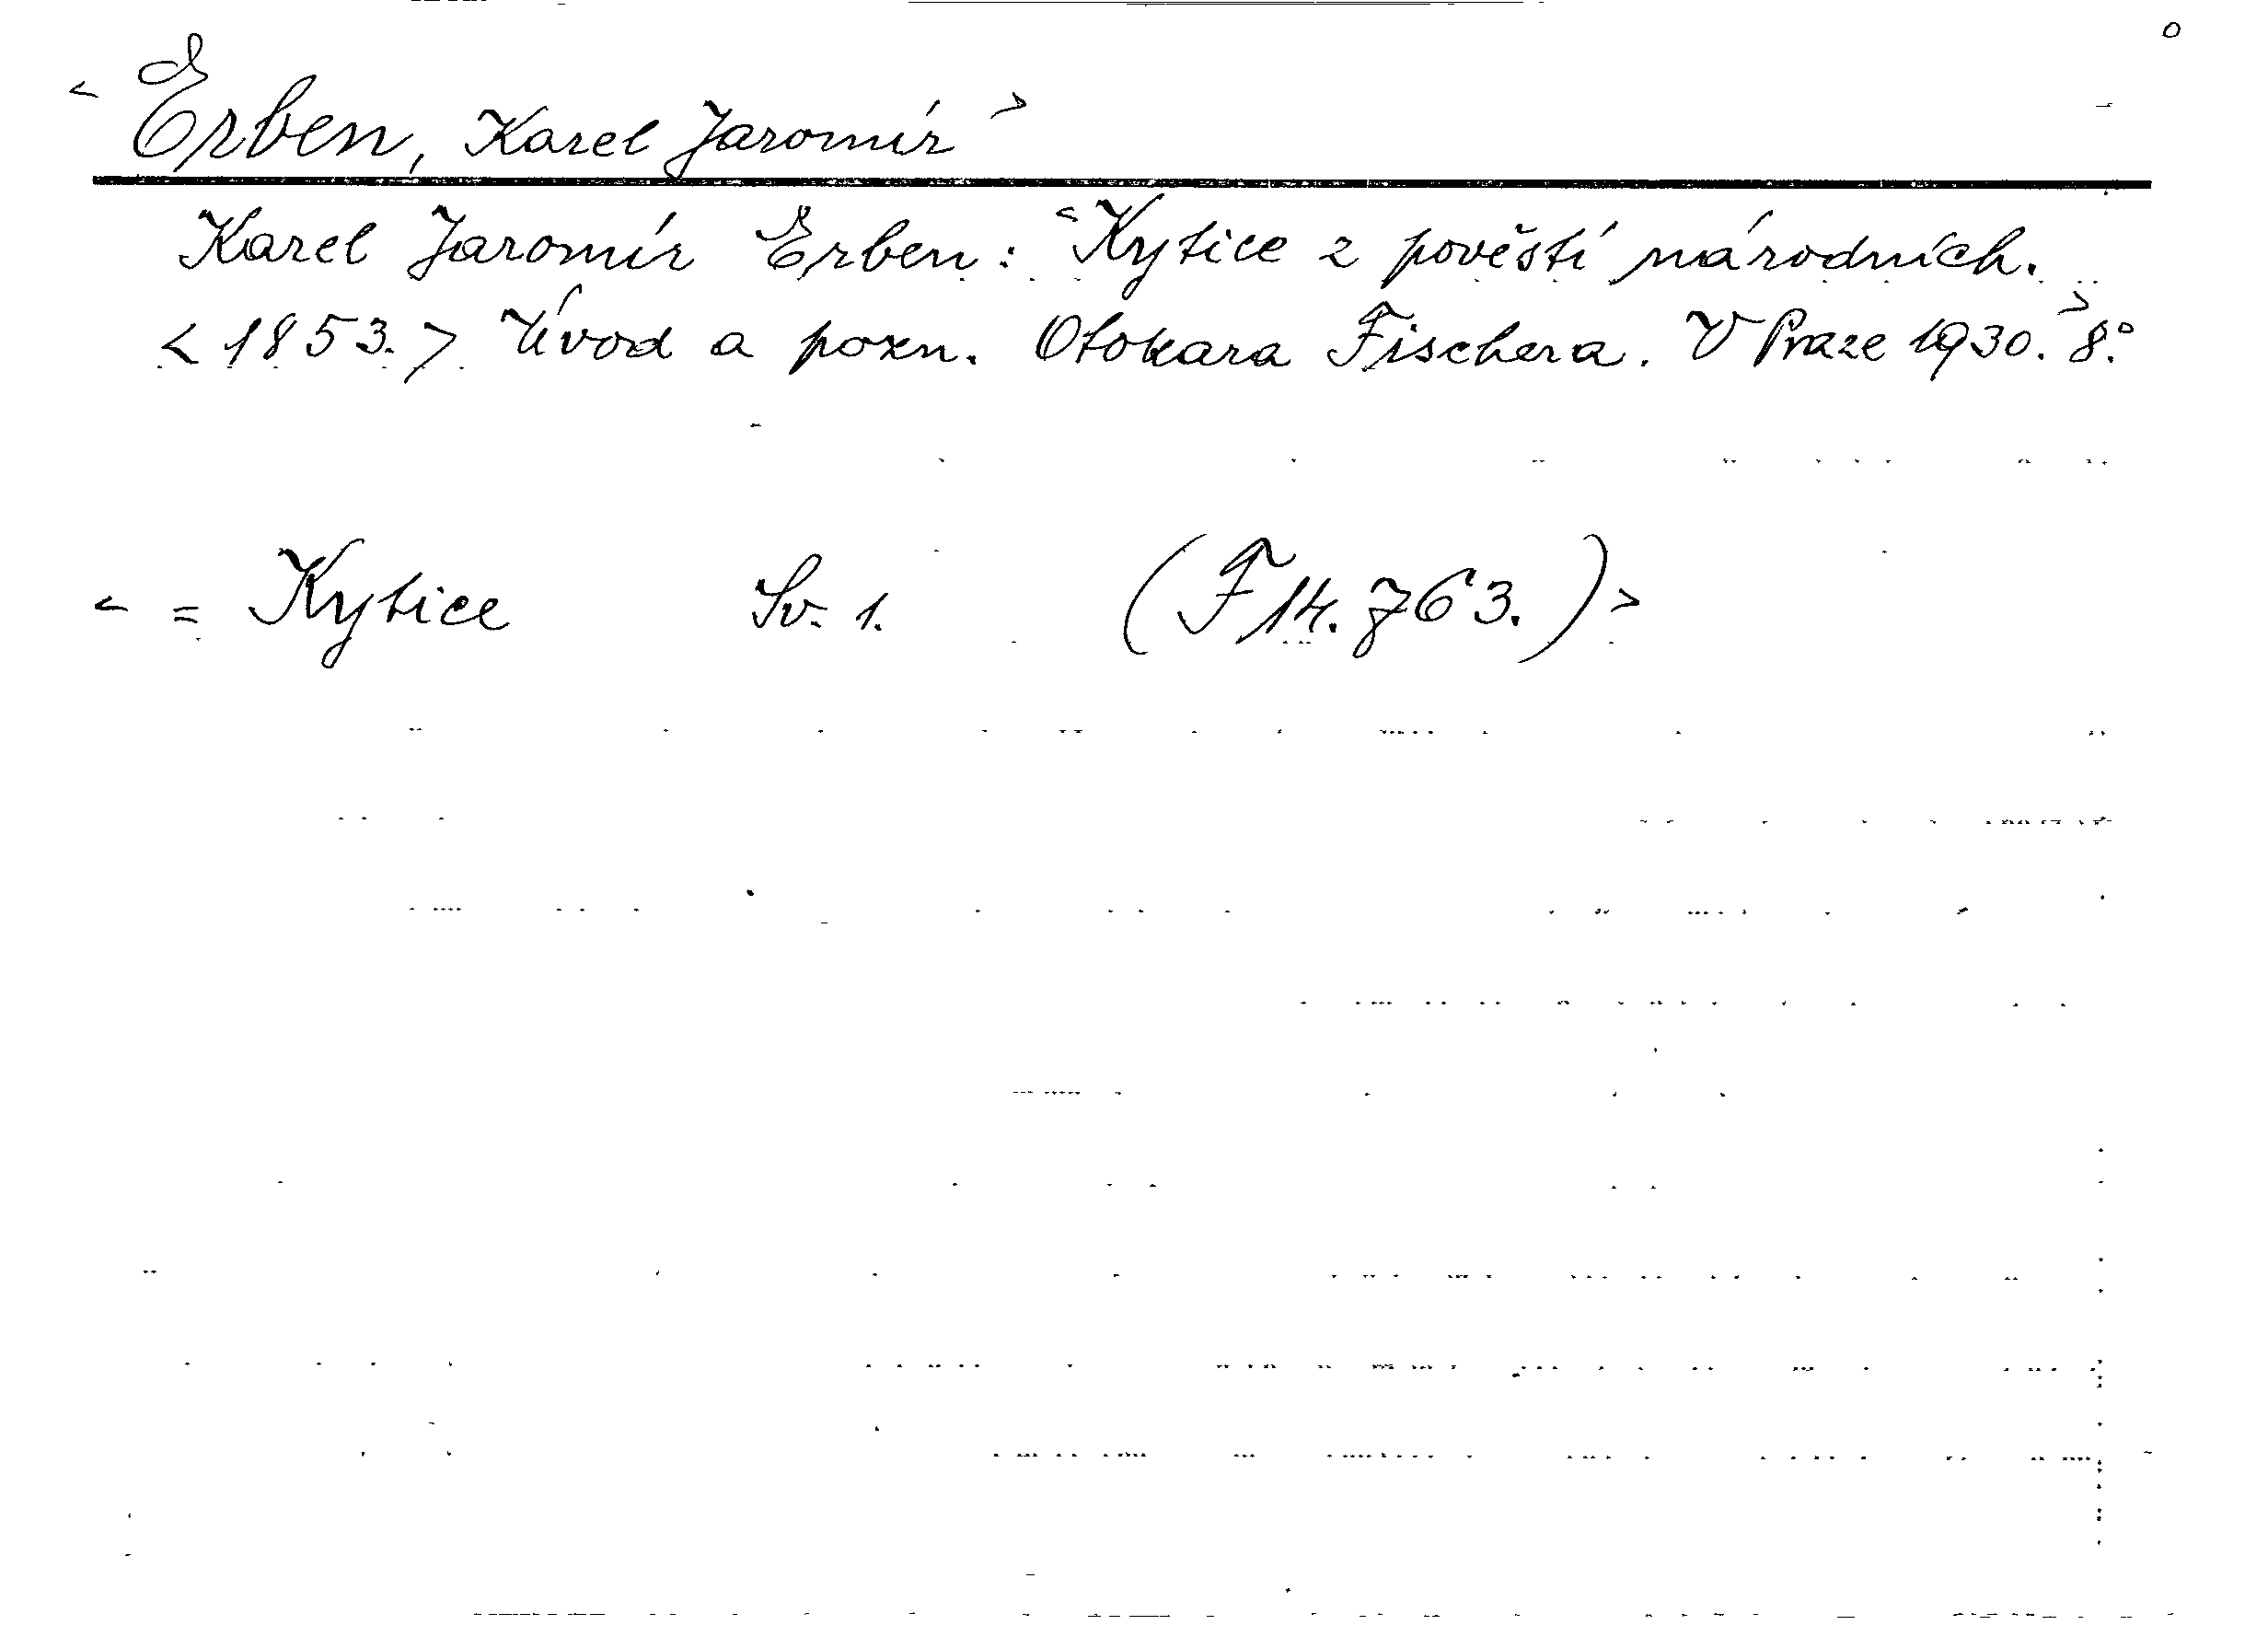 < Erben, Karel Jaromír >
Karel Jaromír Erben: <Kytice z pověstí národních.
<1853.> Úvod a pozn. Otokara Fischera. V Praze 1930.> 8.°
< = Kytice Sv. 1. (F 14.763.) >